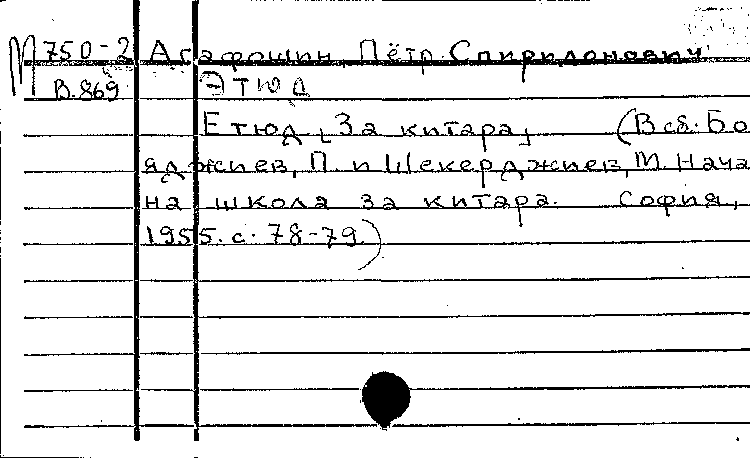 М 750-2 Агафошин, Пётр Спиридонович
В.869 Этюд
Етюд [За китара] (В сб. Бо
яджиев, П. и Шекерджиев, М. Нача
на школа за китара. София,
1955. с. 78-79.)